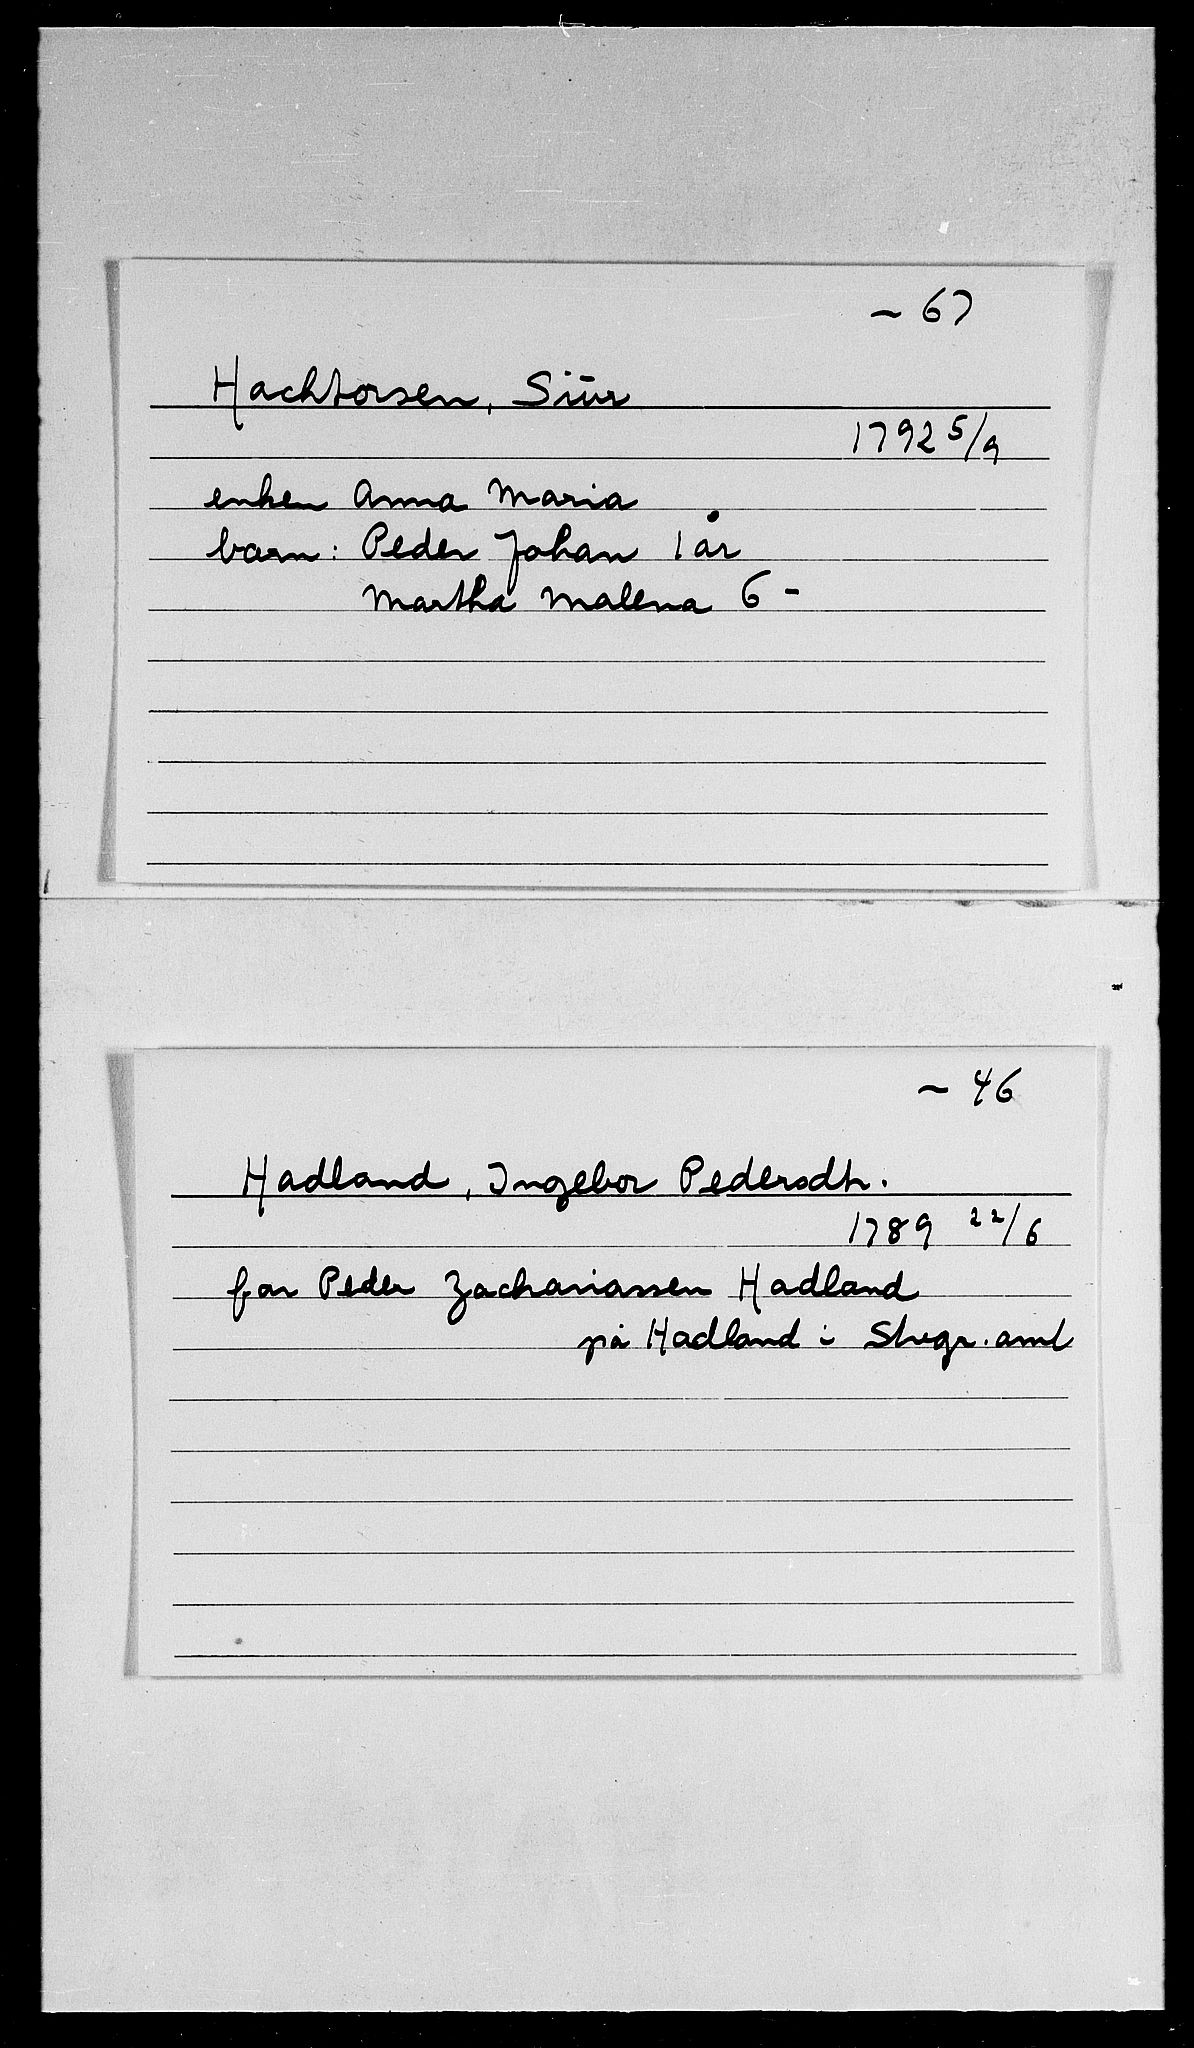 ~ 67
Hachtorsen, Siur
1792 5/9
enken Anna Maria
barn: Peder Johan 1 år
Martha Malena 6 -
~ 46
Hadland, Ingebor Pedersdtr.
1789 22/6
far Peder Zachariassen Hadland
på Hadland i Stvgr. amt